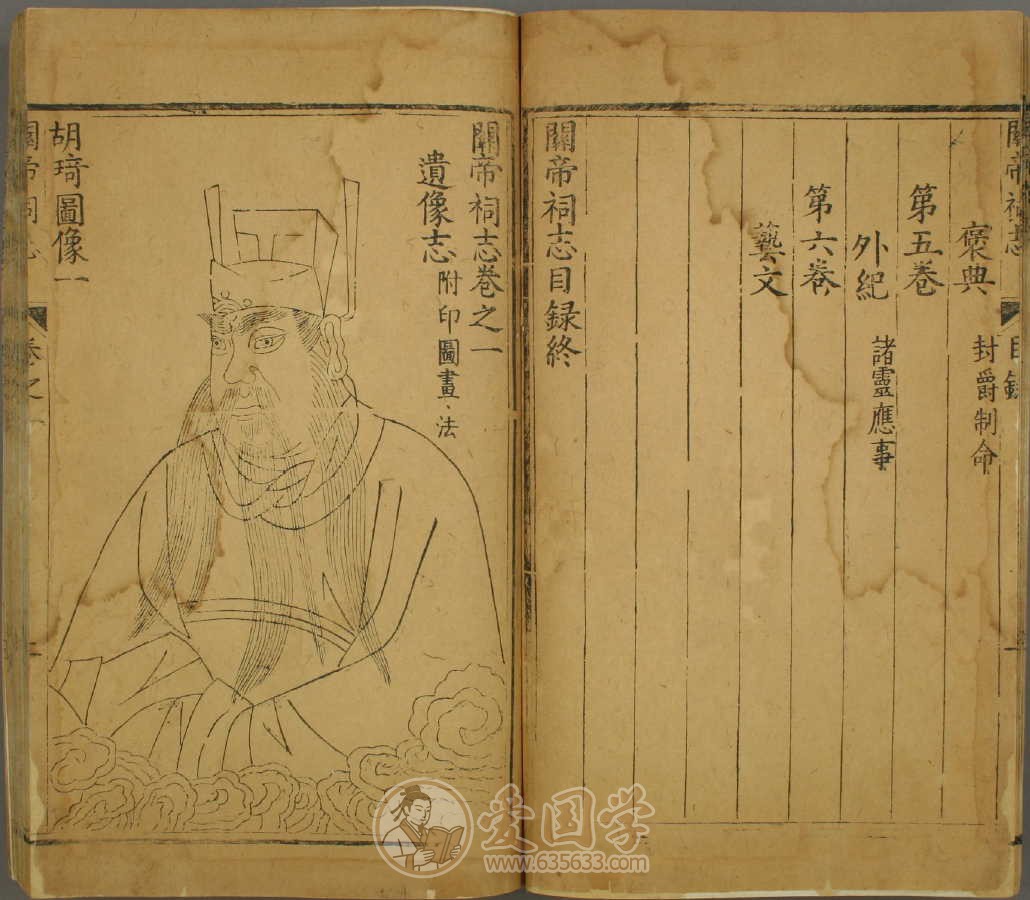 關帝祠志
目錄
褒典
封爵制命
第五卷
外紀
諸靈應事
第六卷
藝文
關帝祠志目録終
關帝祠志卷之一
遺像志
附印圖畫、法
胡琦圖像一
關帝祠志
卷之一
爱国学
www.635633.com